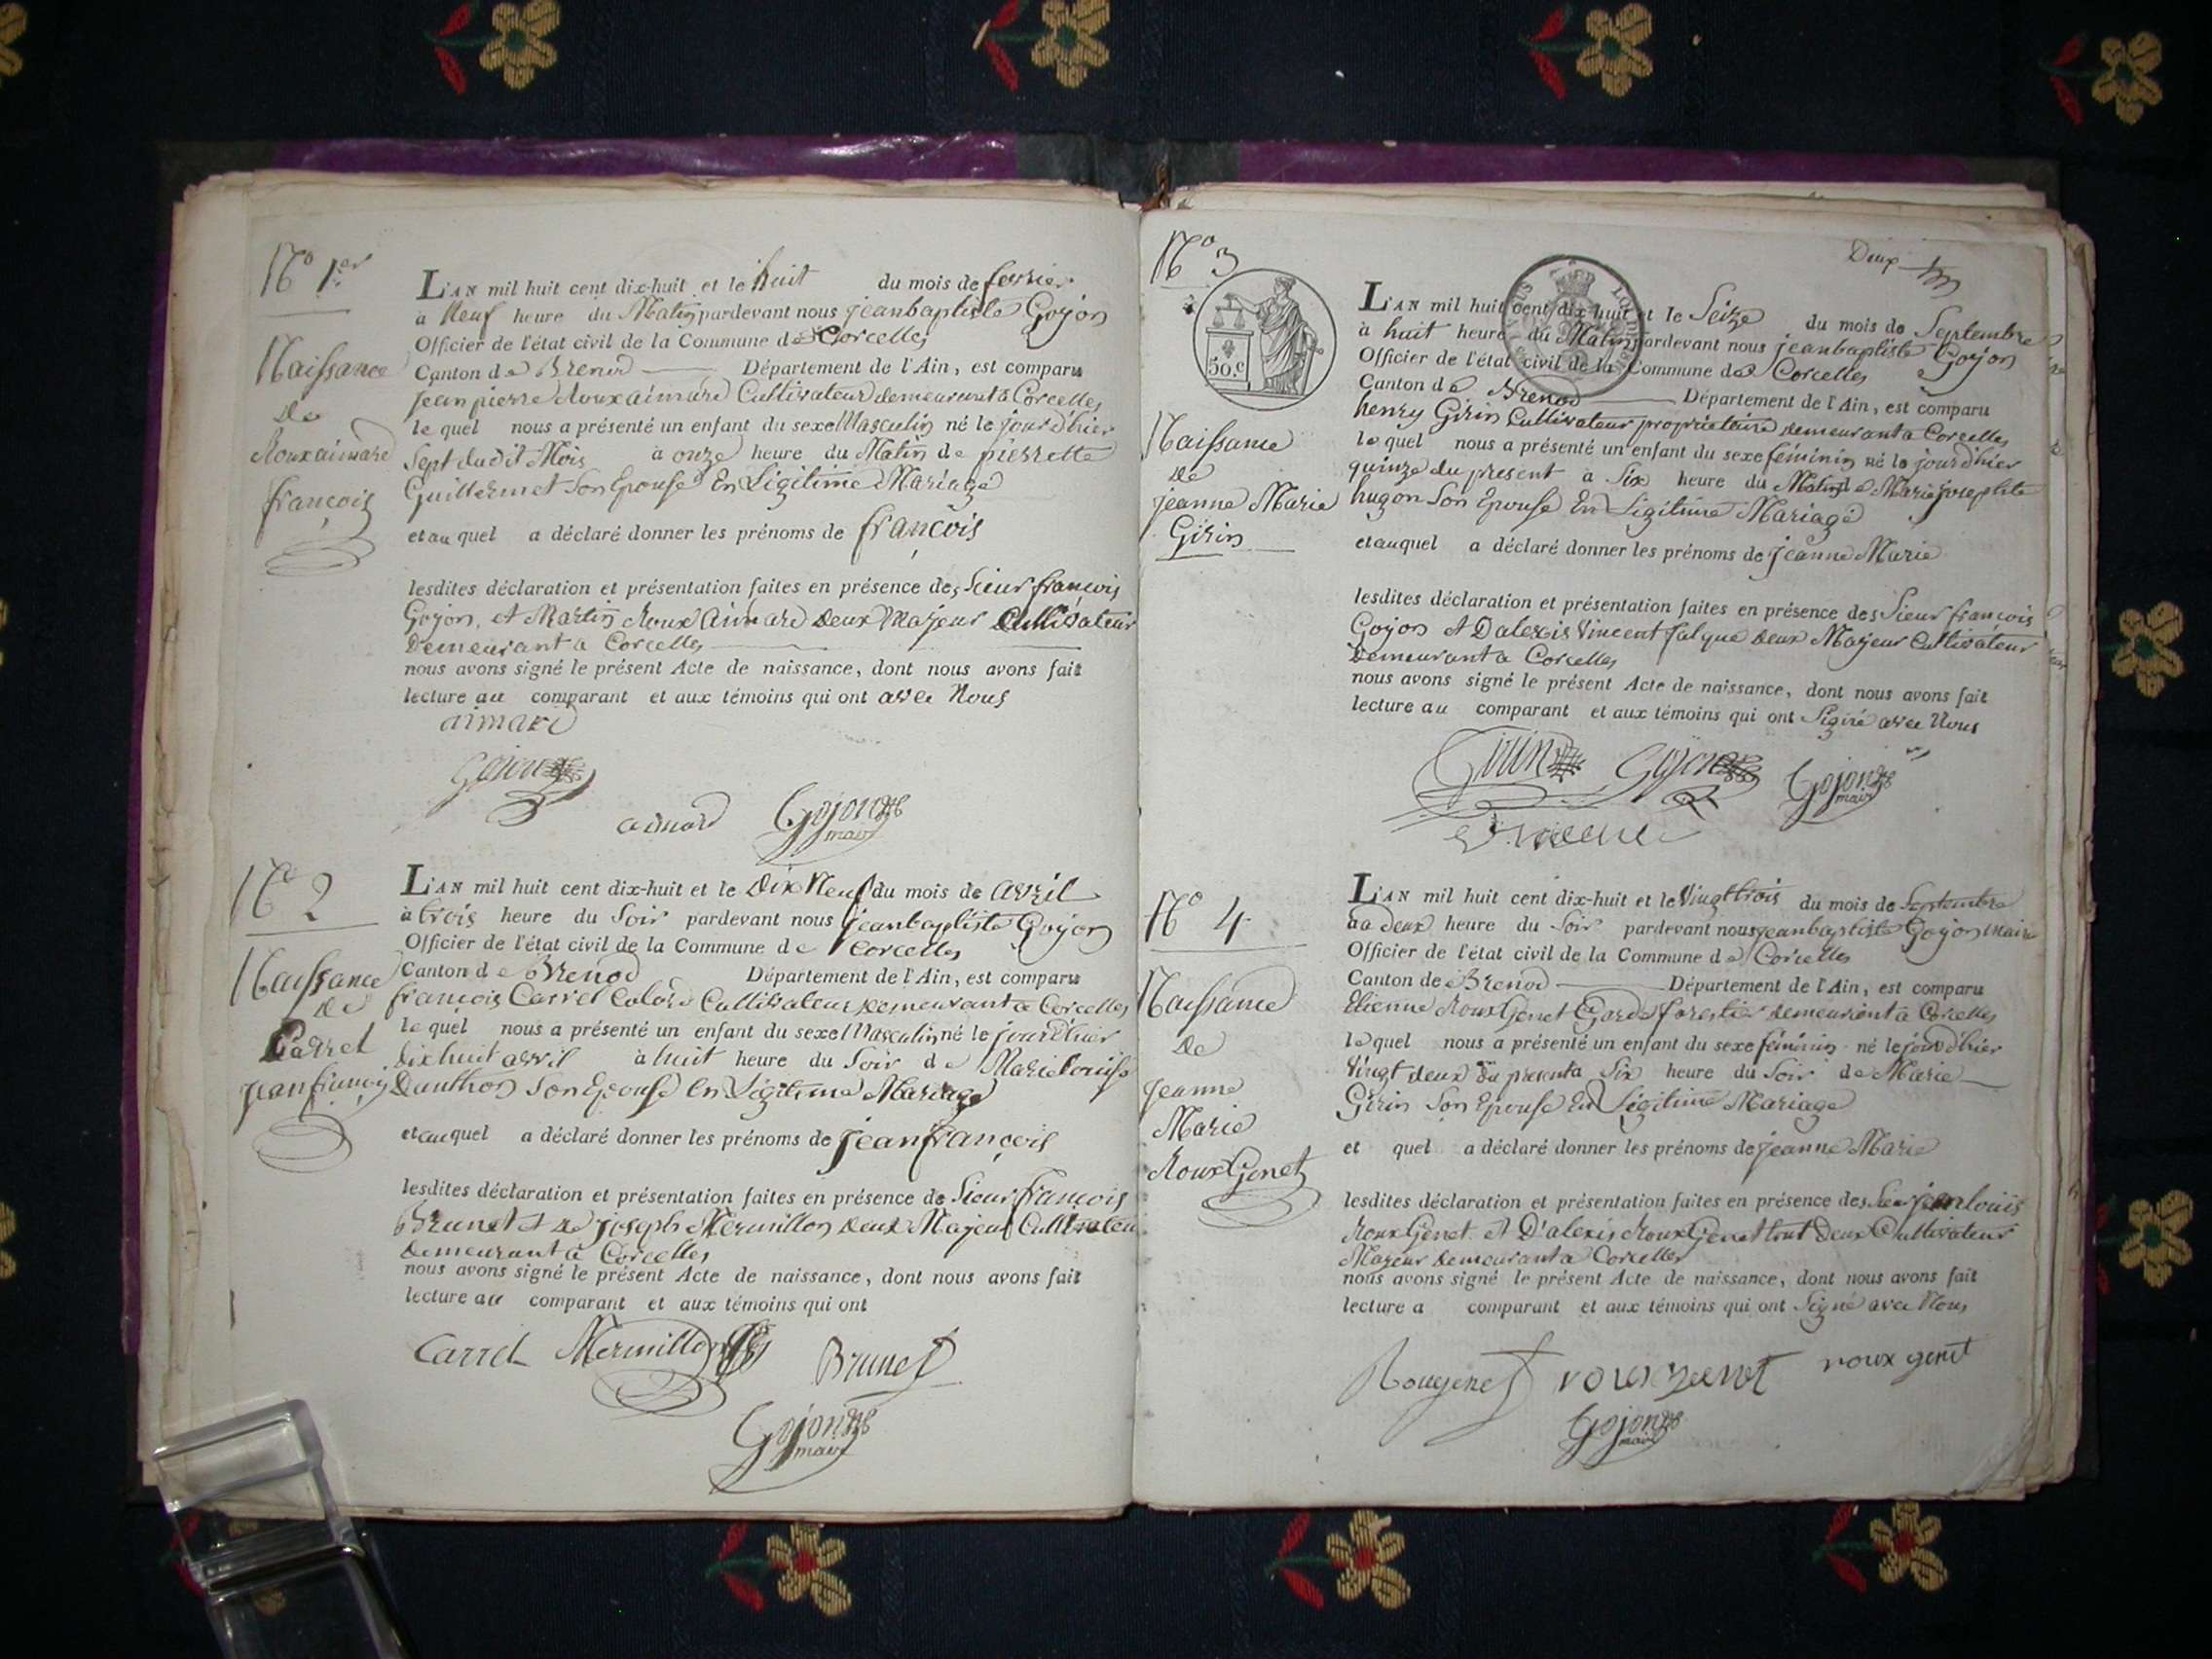 N.o 1.er
Naissance
de
Rouxaimard
françois
L'AN mil huit cent dix-huit et le huit du mois de fevrier
à Neuf heure du Matin pardevant nous jeanbaptiste Gojon
Officier de l'état civil de la Commune de Corcelles
Canton de Brenod Département de l'Ain, est comparu
jean pierre Rouxaimard Cultivateur demeurant a Corcelles
lequel nous a présenté un enfant du sexe Masculin né le jour d'hier
Sept dudit Mois à onze heure du Matin de pierrette
Guillermet Son Epouse En Ligitime Mariage
et au quel a déclaré donner les prénoms de françois
lesdites déclaration et présentation faites en présence des Sieur françois
Gojon, et Martin Roux Aimard deux Majeur Cultivateur
Demeurant a Corcelles
nous avons signé le présent Acte de naissance, dont nous avons fait
lecture au comparant et aux témoins qui ont avec Nous
aimard
Gojon
aimard Gojon
maire
N.o 2
Naissance
de
Carrel
jean françois
L'AN mil huit cent dix-huit et le Dix Neuf du mois de avril
à trois heure du Soir pardevant nous jeanbaptiste Gojon
Officier de l'état civil de la Commune de Corcelles
Canton de Brenod Département de l'Ain, est comparu
françois Carrel Cultivateur Demeurant a Corcelles
lequel nous a présenté un enfant du sexe Masculin né le jour d'hier
dixhuit avril à huit heure du Soir de Marie louise
Dauthon Son Epouse En Ligitime Mariage
et au quel a déclaré donner les prénoms de jean françois
lesdites déclaration et présentation faites en présence de Sieur françois
Brunet et de joseph Mermillon deux Majeur Cultivateur
demeurant a Corcelles
nous avons signé le présent Acte de naissance, dont nous avons fait
lecture au comparant et aux témoins qui ont
Carrel Mermillon Brunet
Gojon
maire
Deux
N.o 3
50.c
Naissance
de
jeanne Marie
Girin
L'AN mil huit cent dix-huit et le Seize du mois de Septembre
à huit heure du Matin pardevant nous jeanbaptiste Gojon
Officier de l'état civil de la Commune de Corcelles
Canton de Brenod Département de l'Ain, est comparu
henry Girin Cultivateur propriétaire demeurant a Corcelles
lequel nous a présenté un enfant du sexe féminin né le jour d'hier
quinze du present à Six heure du Matin de Marie josephte
hugon Son Epouse En Ligitime Mariage
et auquel a déclaré donner les prénoms de jeanne Marie
lesdites déclaration et présentation faites en présence des Sieur françois
Gojon et D'alexis Vincent falque deux Majeur Cultivateur
Demeurant a Corcelles
nous avons signé le présent Acte de naissance, dont nous avons fait
lecture au comparant et aux témoins qui ont Signé avec Nous
Girin Gojon Gojon
maire
Vincent
N.o 4
Naissance
de
jeanne
Marie
Roux Genet
L'AN mil huit cent dix-huit et le Vingt trois du mois de Septembre
à deux heure du Soir pardevant nous jeanbaptiste Gojon maire
Officier de l'état civil de la Commune de Corcelles
Canton de Brenod Département de l'Ain, est comparu
Etienne Roux Genet Garde forestier demeurant a Corcelles
lequel nous a présenté un enfant du sexe féminin né le jour d'hier
Vingt deux du present a Six heure du Soir de Marie
Girin Son Epouse En Ligitime Mariage
et quel a déclaré donner les prénoms de jeanne Marie
lesdites déclaration et présentation faites en présence des Sieur jean louis
Roux Genet et D'alexis Roux Genet tout deux Cultivateur
Majeur demeurant a Corcelles
nous avons signé le présent Acte de naissance, dont nous avons fait
lecture a comparant et aux témoins qui ont Signé avec Nous
Rougenet rouxgenet roux genet
Gojon
maire